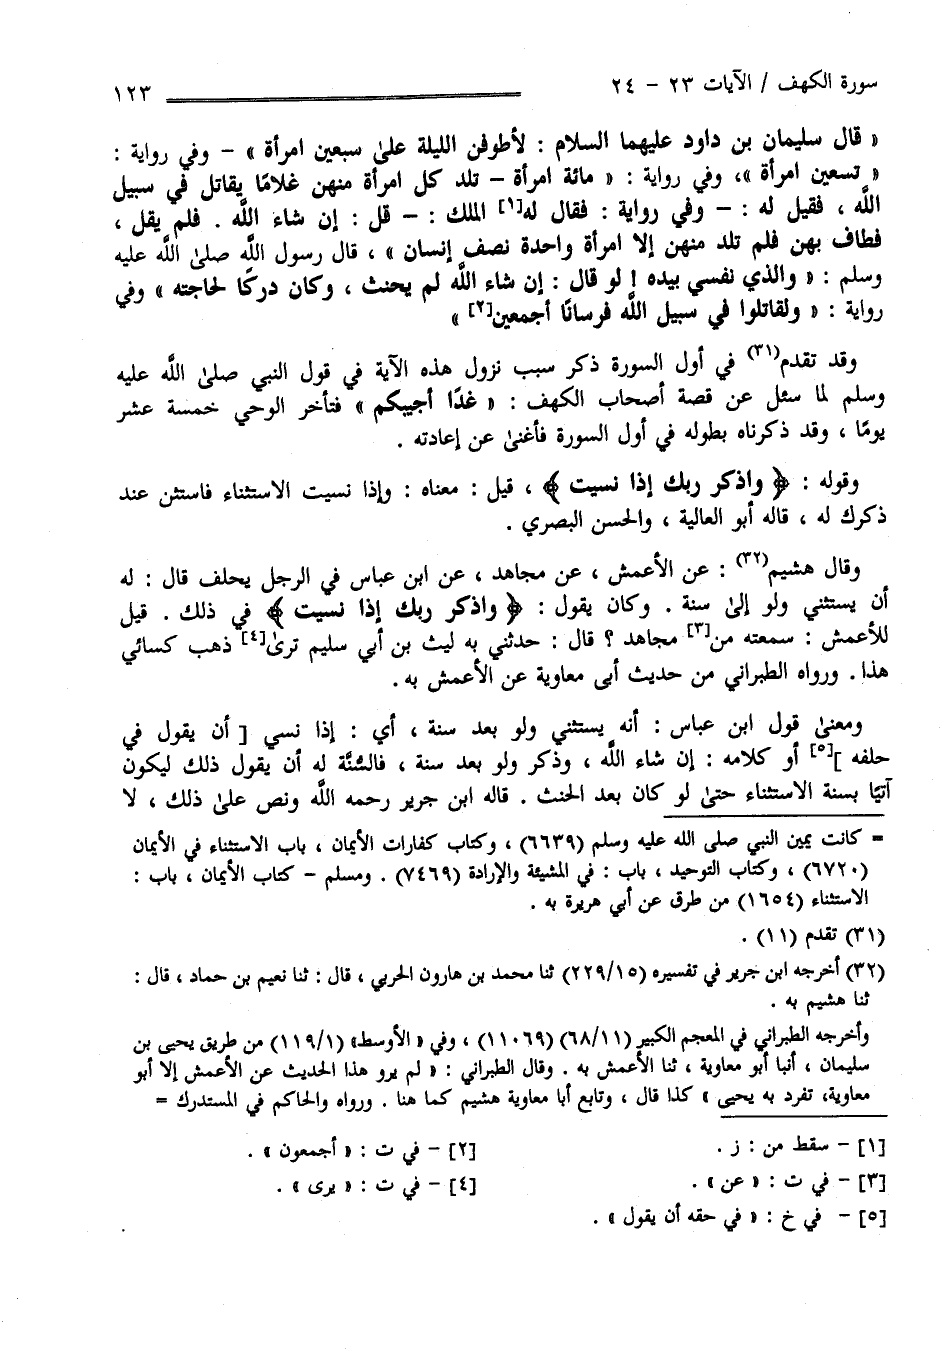 سورة الكهف / الآيات ٢٣ - ٢٤ ١٢٣
« قال سليمان بن داود عليهما السلام : لأطوفن الليلة على سبعين امرأة » - وفي رواية :
« تسعين امرأة »، وفي رواية : « مائة امرأة - تلد كل امرأة منهن غلامًا يقاتل في سبيل
اللَّه ، فقيل له : - وفي رواية : فقال له[١] الملك : - قل : إن شاء اللَّه . فلم يقل ،
فطاف بهن فلم تلد منهن إلا امرأة واحدة نصف إنسان » ، قال رسول اللَّه صلى اللَّه عليه
وسلم : « والذي نفسي بيده ! لو قال : إن شاء اللَّه لم يحنث ، وكان دركًا لحاجته » وفي
رواية : « ولقاتلوا في سبيل اللَّه فرسانًا أجمعين[٢] »
وقد تقدم(٣١) في أول السورة ذكر سبب نزول هذه الآية في قول النبي صلى اللَّه عليه
وسلم لما سئل عن قصة أصحاب الكهف : « غدًا أجيبكم » فتأخر الوحي خمسة عشر
يومًا ، وقد ذكرناه بطوله في أول السورة فأغنى عن إعادته .
وقوله : ﴿ واذكر ربك إذا نسيت ﴾ ، قيل : معناه : وإذا نسيت الاستثناء فاستثن عند
ذكرك له ، قاله أبو العالية ، والحسن البصري .
وقال هشيم(٣٢) : عن الأعمش ، عن مجاهد ، عن ابن عباس في الرجل يحلف قال : له
أن يستثني ولو إلى سنة . وكان يقول : ﴿ واذكر ربك إذا نسيت ﴾ في ذلك . قيل
للأعمش : سمعته من[٣] مجاهد ؟ قال : حدثني به ليث بن أبي سليم ترى[٤] ذهب كسائي
هذا . ورواه الطبراني من حديث أبى معاوية عن الأعمش به .
ومعنى قول ابن عباس : أنه يستثني ولو بعد سنة ، أي : إذا نسي [ أن يقول في
حلفه ][٥] أو كلامه : إن شاء اللَّه ، وذكر ولو بعد سنة ، فالسُّنَّة له أن يقول ذلك ليكون
آتيًا بسنة الاستثناء حتى لو كان بعد الحنث . قاله ابن جرير رحمه اللَّه ونص على ذلك ، لا
= كانت يمين النبي صلى الله عليه وسلم (٦٦٣٩) ، وكتاب كفارات الأيمان ، باب الاستثناء في الأيمان
(٦٧٢٠) ، وكتاب التوحيد ، باب : في المشيئة والإرادة (٧٤٦٩) . ومسلم - كتاب الأيمان ، باب :
الاستثناء (١٦٥٤) من طرق عن أبي هريرة به .
(٣١) تقدم (١١) .
(٣٢) أخرجه ابن جرير في تفسيره (٢٢٩/١٥) ثنا محمد بن هارون الحربي ، قال : ثنا نعيم بن حماد ، قال :
ثنا هشيم به .
وأخرجه الطبراني في المعجم الكبير (٦٨/١١) (١١٠٦٩) ، وفي « الأوسط» (١١٩/١) من طريق يحيى بن
سليمان ، أنبا أبو معاوية ، ثنا الأعمش به . وقال الطبراني : « لم يرو هذا الحديث عن الأعمش إلا أبو
معاوية، تفرد به يحيى » كذا قال ، وتابع أبا معاوية هشيم كما هنا . ورواه والحاكم في المستدرك =
[١] - سقط من : ز . [٢] - في ت : « أجمعون » .
[٣] - في ت : « عن » . [٤] - في ت : « يرى » .
[٥] - في خ : « في حقه أن يقول » .